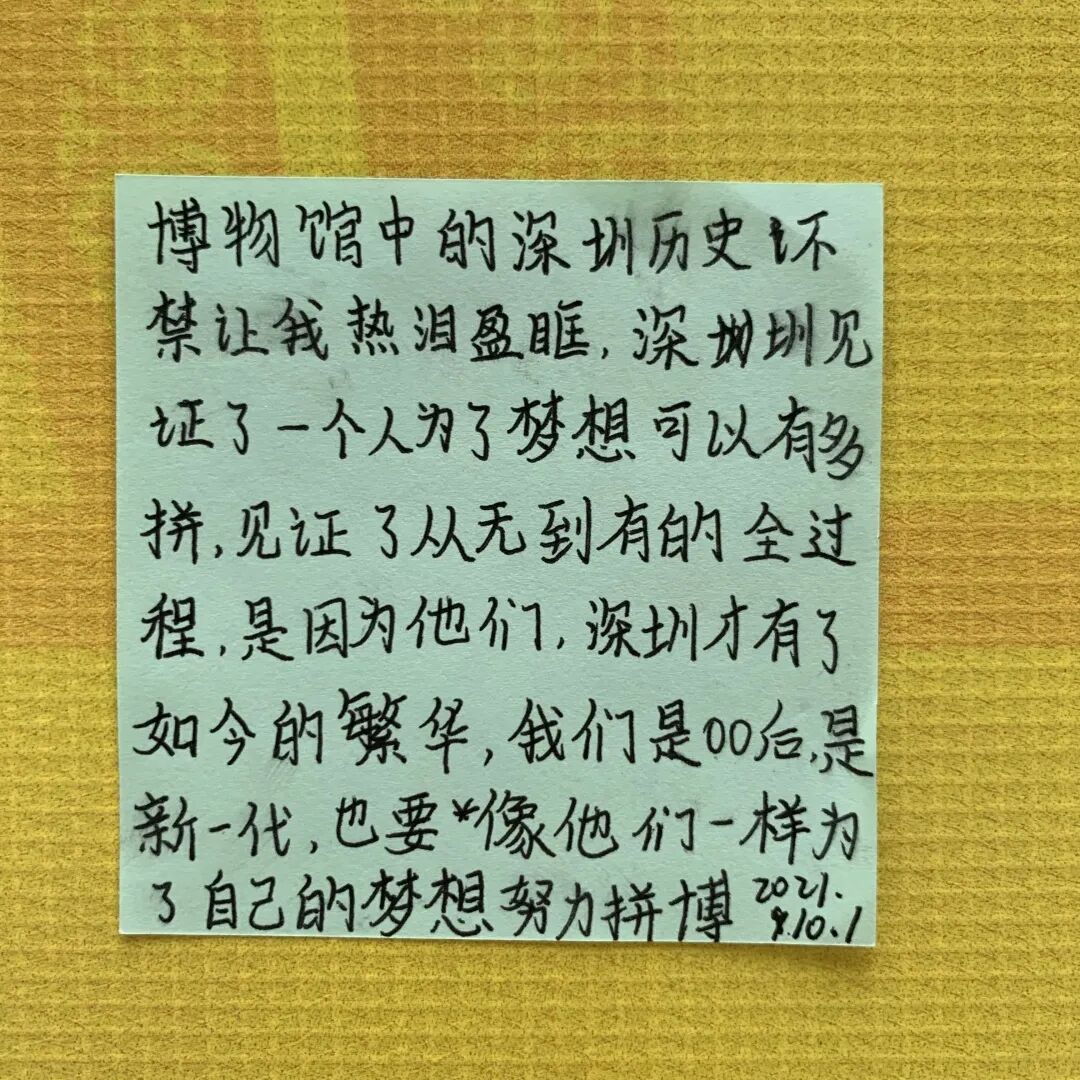 博物馆中的深圳历史不
禁让我热泪盈眶,深圳见
证了一个人为了梦想可以有多
拼,见证了从无到有的全过
程,是因为他们,深圳才有了
如今的繁华,我们是00后,是
新一代,也要*像他们一样为
了自己的梦想努力拼博
2021.
10.1